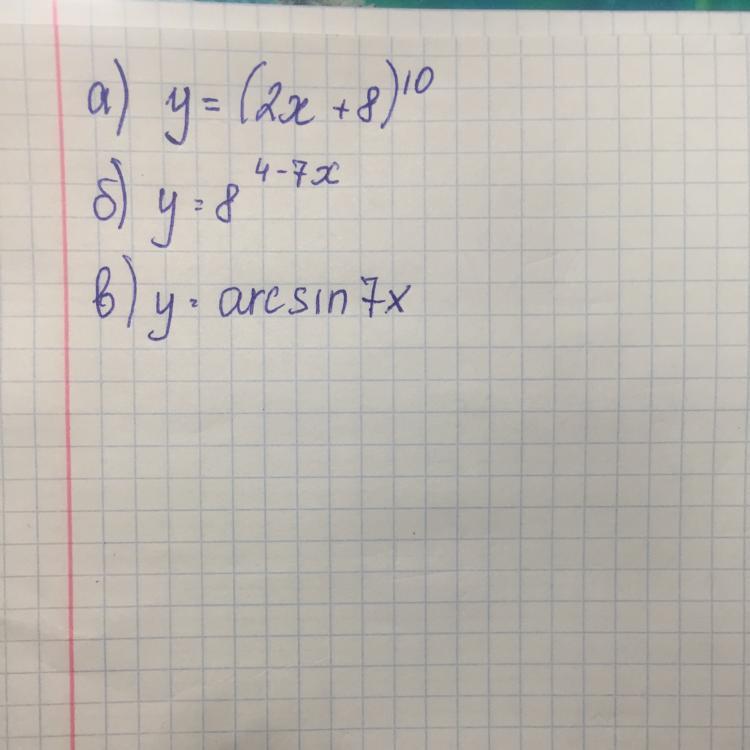 а) y = (2x + 8)^10
б) y = 8^(4-7x)
в) y = arcsin 7x